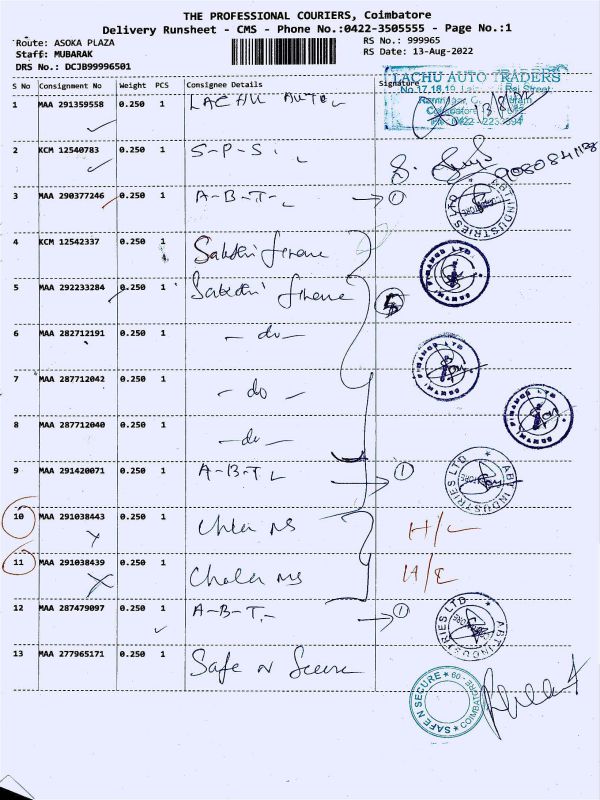 THE PROFESSIONAL COURIERS, Coimbatore
Delivery Runsheet - CMS - Phone No.:0422-3505555 - Page No.:1
Route: ASOKA PLAZA
RS No.: 999965
Staff: MUBARAK
RS Date: 13-Aug-2022
DRS No.: DCJB99996501
S No Consignment No Weight PCS Consignee Details Signature
LACHU AUTO TRADERS
1 MAA 291359558 0.250 1 LACHU AUTO
13/8/22
2 KCM 12540783 0.250 1 S-P-S.
3 MAA 290377246 0.250 1 A-B-T- 1
ABT INDUSTRIES LTD
4 KCM 12542337 0.250 1 Sakthi finance
5 MAA 292233284 0.250 1 Sakthi finance 5
6 MAA 282712191 0.250 1 -do-
7 MAA 287712042 0.250 1 -do-
8 MAA 287712040 0.250 1 -do-
9 MAA 291420071 0.250 1 A-B-T 1
ABT INDUSTRIES LTD
10 MAA 291038443 0.250 1 Chola MS H/L
11 MAA 291038439 0.250 1 Chola MS H/L
12 MAA 287479097 0.250 1 A-B-T- 1
ABT INDUSTRIES LTD
13 MAA 277965171 0.250 1 Safe N Secure
SAFE N SECURE COIMBATORE